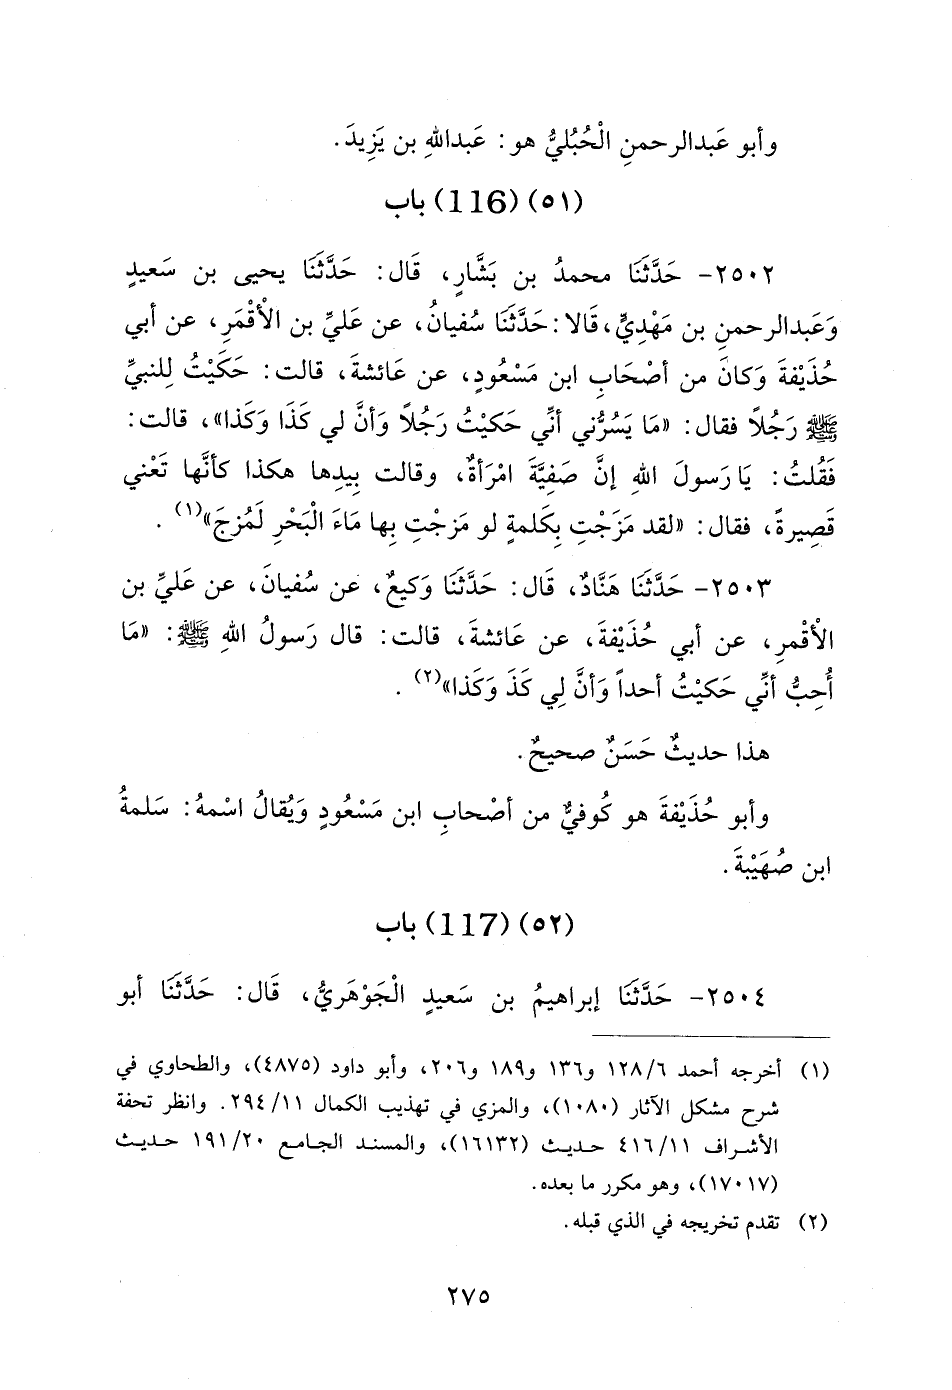 وأبو عَبدالرحمنِ الْحُبُليُّ هو: عَبداللهِ بن يَزِيدَ.
(٥١) (116) باب
٢٥٠٢- حَدَّثَنَا محمدُ بن بَشَّارٍ، قَال: حَدَّثَنَا يحيى بن سَعيدٍ
وَعَبدالرحمنِ بن مَهْدِيٍّ، قَالا: حَدَّثَنَا سُفيانُ، عن عَليِّ بن الأقْمَرِ، عن أبي
حُذَيْفةَ وَكانَ من أصْحَابِ ابن مَسْعُودٍ، عن عَائشةَ، قالت: حَكَيْتُ لِلنبيِّ
ﷺ رَجُلاً فقال: «مَا يَسُرُّني أنِّي حَكَيْتُ رَجُلاً وَأنَّ لي كَذَا وَكَذا»، قالت:
فَقُلتُ: يَا رَسولَ اللهِ إنَّ صَفِيَّةَ امْرَأةٌ، وقالت بِيدِها هكذا كأنَّها تَعْني
قَصِيرةً، فقال: «لقد مَزَجْتِ بِكَلمةٍ لو مَزجْتِ بِها مَاءَ الْبَحْرِ لَمُزجَ»(١) .
٢٥٠٣- حَدَّثَنَا هَنَّادٌ، قَال: حَدَّثَنَا وَكيعٌ، عن سُفيانَ، عن عَليِّ بن
الْأقْمرِ، عن أبي حُذَيْفةَ، عن عَائشةَ، قالت: قال رَسولُ اللهِ ﷺ: «مَا
أُحِبُّ أنِّي حَكيْتُ أحداً وَأنَّ لِي كَذَ وَكَذا»(٢) .
هذا حديثٌ حَسَنٌ صحيحٌ.
وأبو حُذَيْفةَ هو كُوفيٌّ من أصْحابِ ابن مَسْعُودٍ وَيُقالُ اسْمهُ: سَلمةُ
ابن صُهَيْبةَ.
(٥٢) (117) باب
٢٥٠٤- حَدَّثَنَا إبراهيمُ بن سَعيدٍ الْجَوْهَريُّ، قَال: حَدَّثَنَا أبو
(١) أخرجه أحمد ١٢٨/٦ و١٣٦ و١٨٩ و٢٠٦، وأبو داود (٤٨٧٥)، والطحاوي في
شرح مشكل الآثار (١٠٨٠)، والمزي في تهذيب الكمال ٢٩٤/١١. وانظر تحفة
الأشراف ٤١٦/١١ حديث (١٦١٣٢)، والمسند الجامع ١٩١/٢٠ حديث
(١٧٠١٧)، وهو مكرر ما بعده.
(٢) تقدم تخريجه في الذي قبله.
٢٧٥